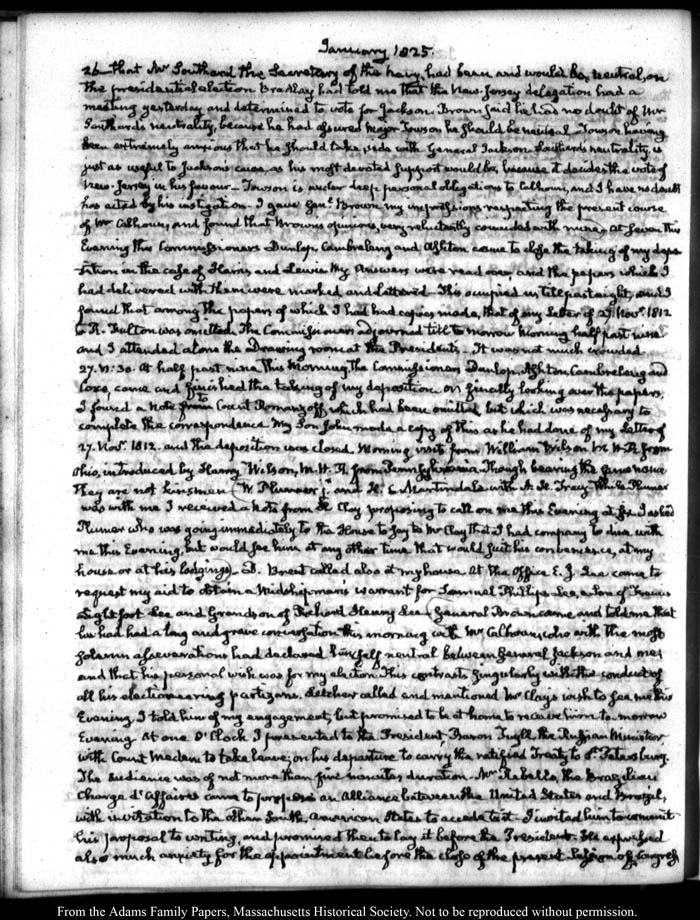 January 1825.
26— that Mr Southard the Secretary of the Navy, had been and would be, neutral, on
the presidential election Bradley had told me that the New-Jersey delegation had a
meeting yesterday and determined to vote for Jackson. Brown said he had no doubt of Mr
Southard's neutrality, because he had assured Major Towson he should be neutral Towson having
been extremely anxious that he should take side with General Jackson. Southard's neutrality, is
just as useful to Jackson's cause, as his most devoted support would be, because it decides the vote of
New-Jersey in his favour— Towson is under deep personal obligations to Calhoun, and I have no doubt
has acted by his instigation. I gave Genl. Brown my impressions respecting the present course
of Mr Calhoun, and found that Brown's opinions, very reluctantly coincided with mine. At seven this
Evening the Commissioners Dunlop, Cambreleng and Ashton came to close the taking of my depo-
sition in the case of Harris and Lewis. My Answers were read over and the papers which I
had delivered with them were marked and lettered. This occupied us till past eight, and I
found that among the papers of which I had had copies made, that of my Letter of 27. Novr. 1812
to R. Fulton was omitted. The Commissioners adjourned till to-morrow Morning half past nine.
and I attended alone the Drawing room at the Presidents— It was not much crowded.
27. V: 30. At half past nine this Morning, the Commissioners Dunlop, Ashton, Cambreleng and
Coxe, came and finished the taking of my deposition. On finally looking over the papers,
I found a Note to from Count Romanzoff which had been omitted but which was necessary to
complete the correspondence. My Son John made a copy of this as he had done of my Letter of
27. Novr. 1812. and the deposition was closed. Morning visit from William Wilson M. H. R. from
Ohio, introduced by Henry Wilson, M. H. R. from Pennsylvania. Though bearing the same name
they are not kinsmen (W. Plumer jr. and H. C. Martindale with A. H. Tracy. While Plumer
was with me I received a Note from H. Clay proposing to call on me this Evening at six. I asked
Plumer who was going immediately to the House to say to Mr Clay that I had company to dine with
me this Evening, but would see him at any other time that would suit his convenience, at my
house or at his lodgings)— D. Brent called also at my house. At the Office E. J. Lee came to
request my aid to obtain a Midshipman's warrant for Samuel Phillips Lee, a Son of Francis
Lightfoot Lee and Grandson of Richard Henry Lee (General Brown came and told me that
he had had a long and grave conversation this morning with Mr Calhoun, who with the most
solemn asseverations had declared himself neutral between General Jackson and me,
and that his personal wish was for my election. This contrasts singularly with the conduct of
all his electioneering partizans. Letcher called and mentioned Mr Clay's wish to see me this
Evening. I told him of my engagement, but promised to be at home to receive him to-morrow
Evening. At one O'Clock I presented to the President Baron Tuyll the Russian Minister
with Count Medem to take leave, on his departure to carry the ratified Treaty to St. Petersburg.
The audience was of not more than five minutes duration. Mr Rebello, the Brazilian
Chargé d'Affaires came to propose an Alliance between the United States and Brazil,
with invitation to the other South American States to accede to it. I invited him to commit
his proposal to writing, and promised then to lay it before the President. He expressed
also much anxiety for the appointment before the close of the present Session of Congress
From the Adams Family Papers, Massachusetts Historical Society. Not to be reproduced without permission.